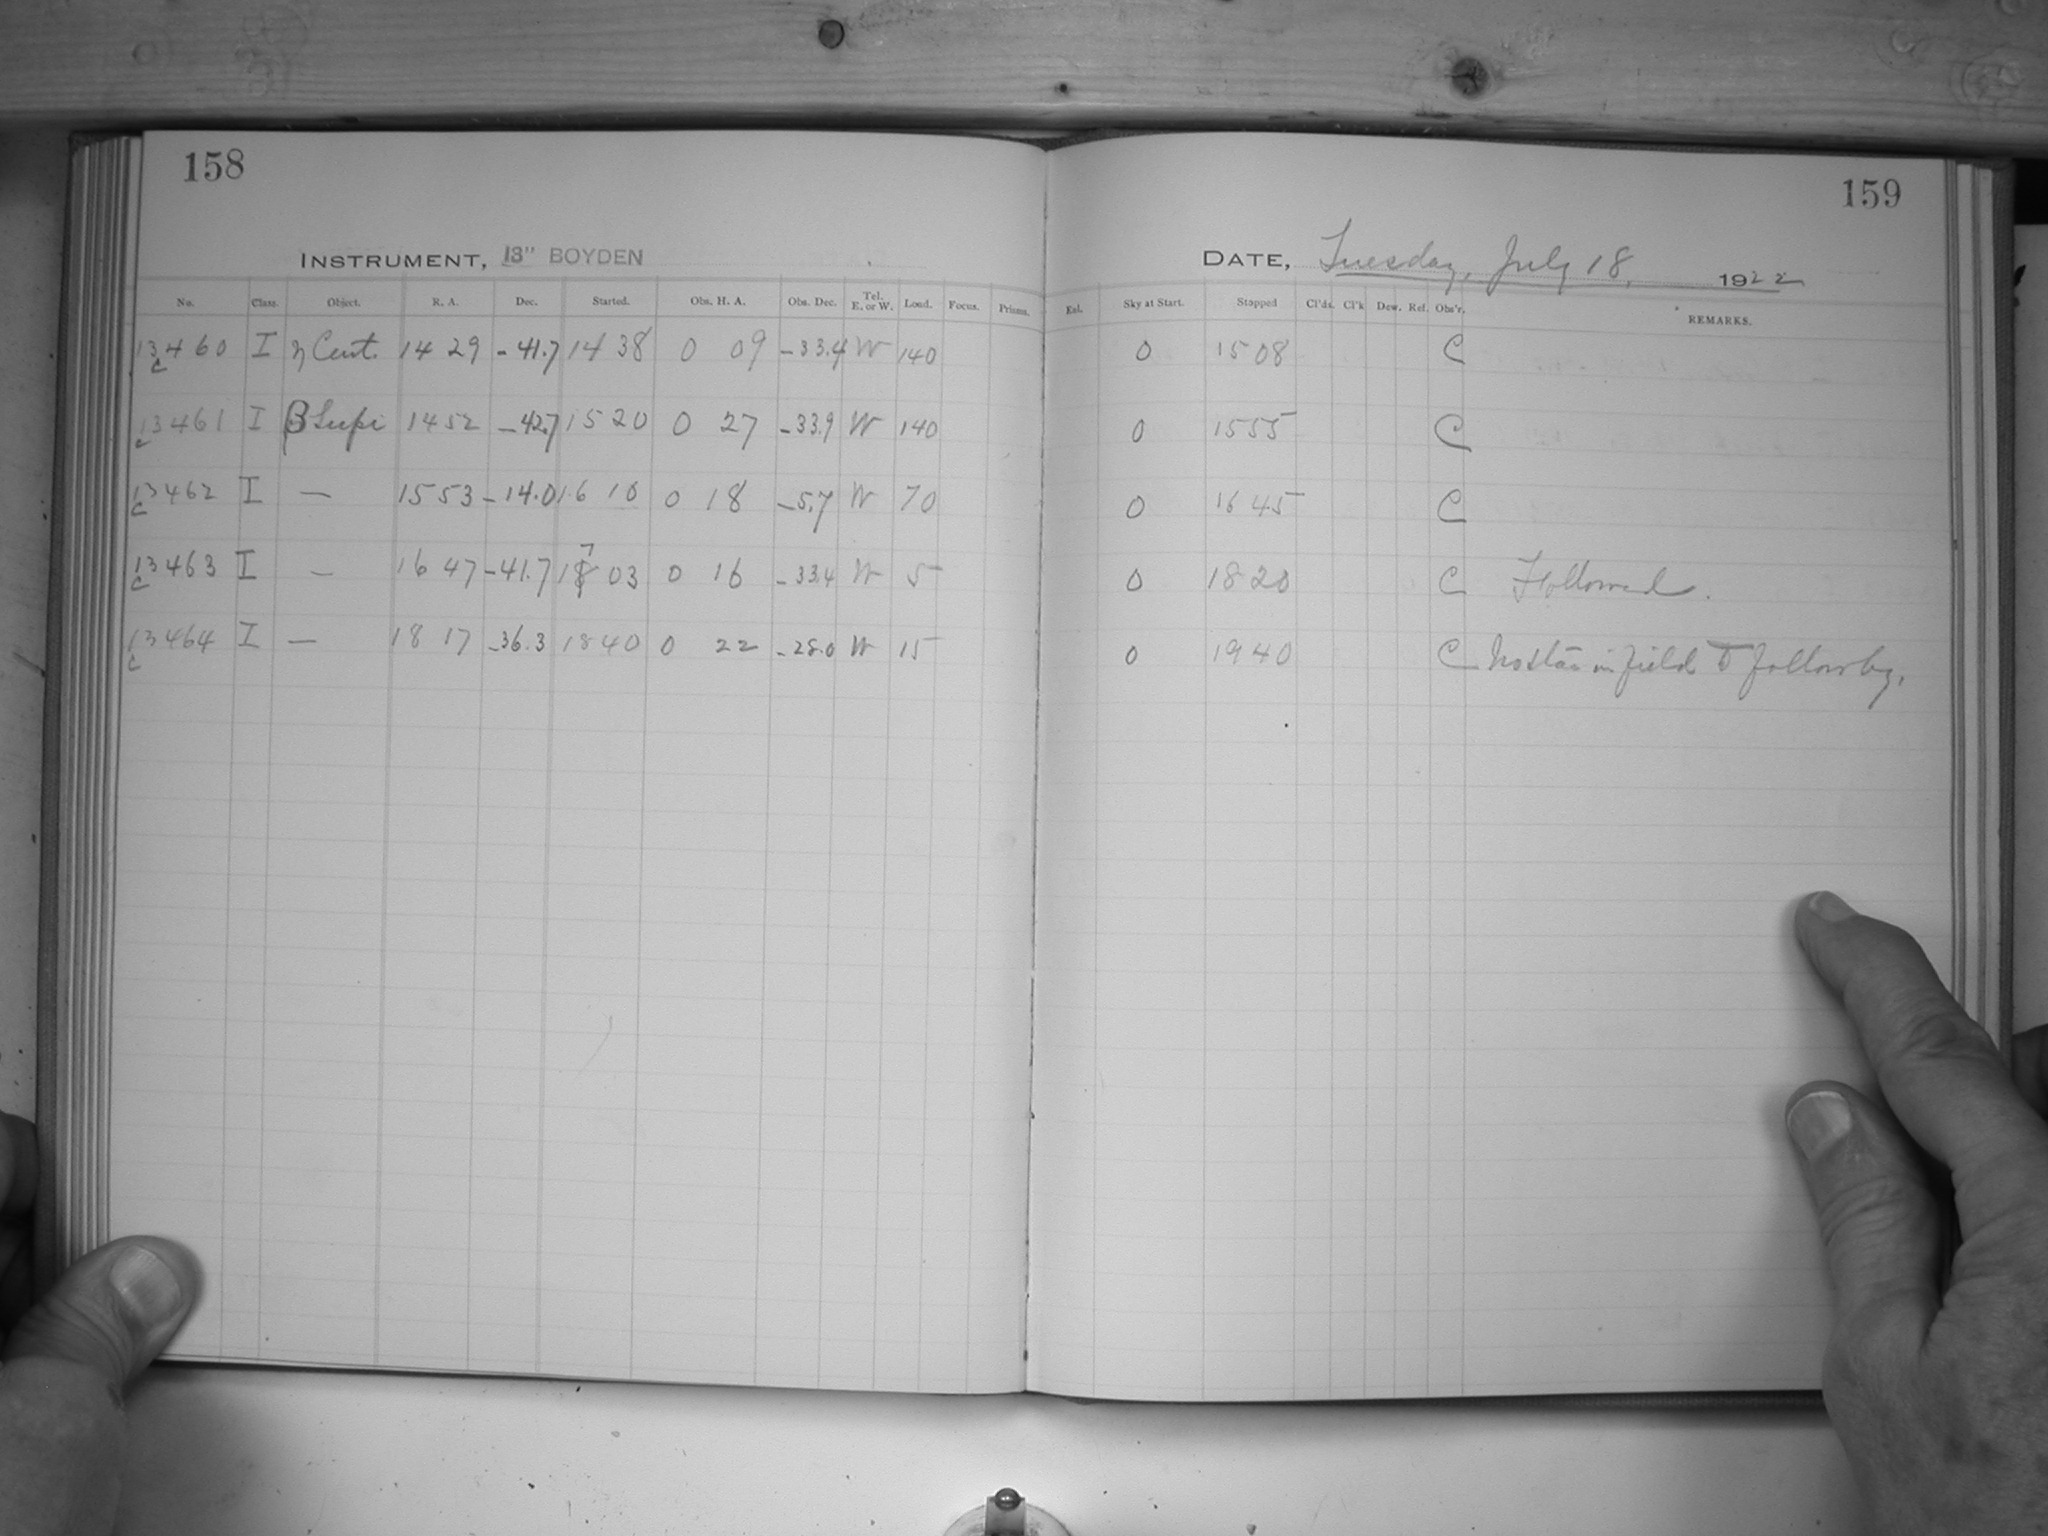 158
159
INSTRUMENT, 13" BOYDEN
DATE, Tuesday, July 18, 1922
No. Class. Object. R. A. Dec. Started. Obs. H. A. Obs. Dec. Tel. E. or W. Load. Focus. Prisms. Ext. Sky at Start. Stopped Cl'ds. Cl'k Dew. Ref. Obs'r. REMARKS.
13460 c I η Cent. 14 29 -41.7 14 38 0 09 -33.4 W 140 0 15 08 C
13461 c I β Lupi 14 52 -42.7 15 20 0 27 -33.9 W 140 0 15 55 C
13462 c I — 15 53 -14.0 16 10 0 18 -5.7 W 70 0 16 45 C
13463 c I — 16 47 -41.7 17 03 0 16 -33.4 W 5 0 18 20 C Followed.
13464 c I — 18 17 -36.3 18 40 0 22 -28.0 W 15 0 19 40 C No star in field to follow by.